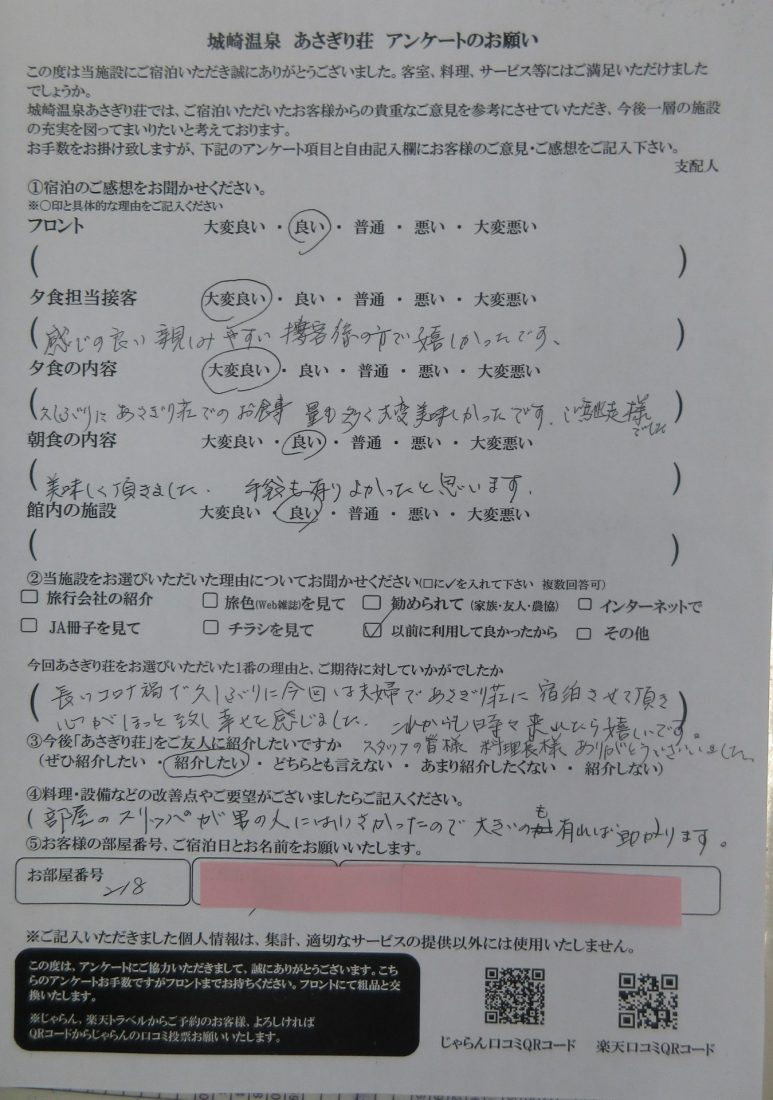 城崎温泉 あさぎり荘 アンケートのお願い
この度は当施設にご宿泊いただき誠にありがとうございました。客室、料理、サービス等にはご満足いただけました
でしょうか。
城崎温泉あさぎり荘では、ご宿泊いただいたお客様からの貴重なご意見を参考にさせていただき、今後一層の施設
の充実を図ってまいりたいと考えております。
お手数をお掛け致しますが、下記のアンケート項目と自由記入欄にお客様のご意見・ご感想をご記入下さい。
支配人
①宿泊のご感想をお聞かせください。
※○印と具体的な理由をご記入ください
フロント 大変良い ・ 良い ・ 普通 ・ 悪い ・ 大変悪い
( )
夕食担当接客 大変良い ・ 良い ・ 普通 ・ 悪い ・ 大変悪い
(感じの良い 親しみやすい 接客係の方で嬉しかったです、)
夕食の内容 大変良い ・ 良い ・ 普通 ・ 悪い ・ 大変悪い
(久しぶりにあさぎり荘でのお食事 量も多く大変美味しかったです、ご馳走様でした)
朝食の内容 大変良い ・ 良い ・ 普通 ・ 悪い ・ 大変悪い
(美味しく頂きました. も有りよかったと思います.)
館内の施設 大変良い ・ 良い ・ 普通 ・ 悪い ・ 大変悪い
( )
②当施設をお選びいただいた理由についてお聞かせください(□に✓を入れて下さい 複数回答可)
□ 旅行会社の紹介 □ 旅色(Web雑誌)を見て □ 勧められて(家族・友人・農協) □ インターネットで
□ JA冊子を見て □ チラシを見て ☑ 以前に利用して良かったから □ その他
今回あさぎり荘をお選びいただいた1番の理由と、ご期待に対していかがでしたか
(長いコロナ禍で久しぶりに今回は夫婦であさぎり荘に宿泊させて頂き
心がほっと致し幸せを感じました. これからも時々来れたら嬉しいです。)
③今後「あさぎり荘」をご友人に紹介したいですか スタッフの皆様 料理長様 ありがとうございました。
(ぜひ紹介したい ・ 紹介したい ・ どちらとも言えない ・ あまり紹介したくない ・ 紹介しない)
④料理・設備などの改善点やご要望がございましたらご記入ください。
(部屋のスリッパが男の人には小さかったので大きいのも有れば助かります。)
⑤お客様の部屋番号、ご宿泊日とお名前をお願いいたします。
お部屋番号
218
※ご記入いただきました個人情報は、集計、適切なサービスの提供以外には使用いたしません。
この度は、アンケートにご協力いただきまして、誠にありがとうございます。こち
らのアンケートお手数ですがフロントまでお持ちください。フロントにて粗品と交
換いたします。
※じゃらん、楽天トラベルからご予約のお客様、よろしければ
QRコードからじゃらんの口コミ投票お願いいたします。
じゃらん口コミQRコード 楽天口コミQRコード